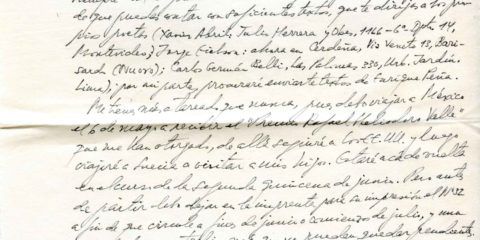 do que puedas contar con suficientes textos, que te dirijas a los pro-
pios poetas (Xavier Abril, Julio Herrera y Obes, 1166 - 6º Dpto 14,
Montevideo; Jorge Eielson: ahora en Cerdeña, Via Veneto 13, Bari-
sardo (Nuoro); Carlos Germán Belli, Las Palmeras 330, Urb. Jardín,
Lima); por mi parte, procuraré enviarte textos de Enrique Peña.
Me tienes más atareado que nunca, pues debo viajar a México
el 6 de mayo a recibir el "Premio Rafael Heliodoro Valle"
que me han otorgado, de allí seguiré a los EE. UU. y luego
viajaré a Suecia a visitar a mis hijos. Estaré acá de vuelta
en el curso de la segunda quincena de junio. Pero antes
de partir debo dejar en la imprenta para su impresión el Nº 32
a fin de que circule a fines de junio o comienzos de julio, y una
que no pueden quedar pendientes.